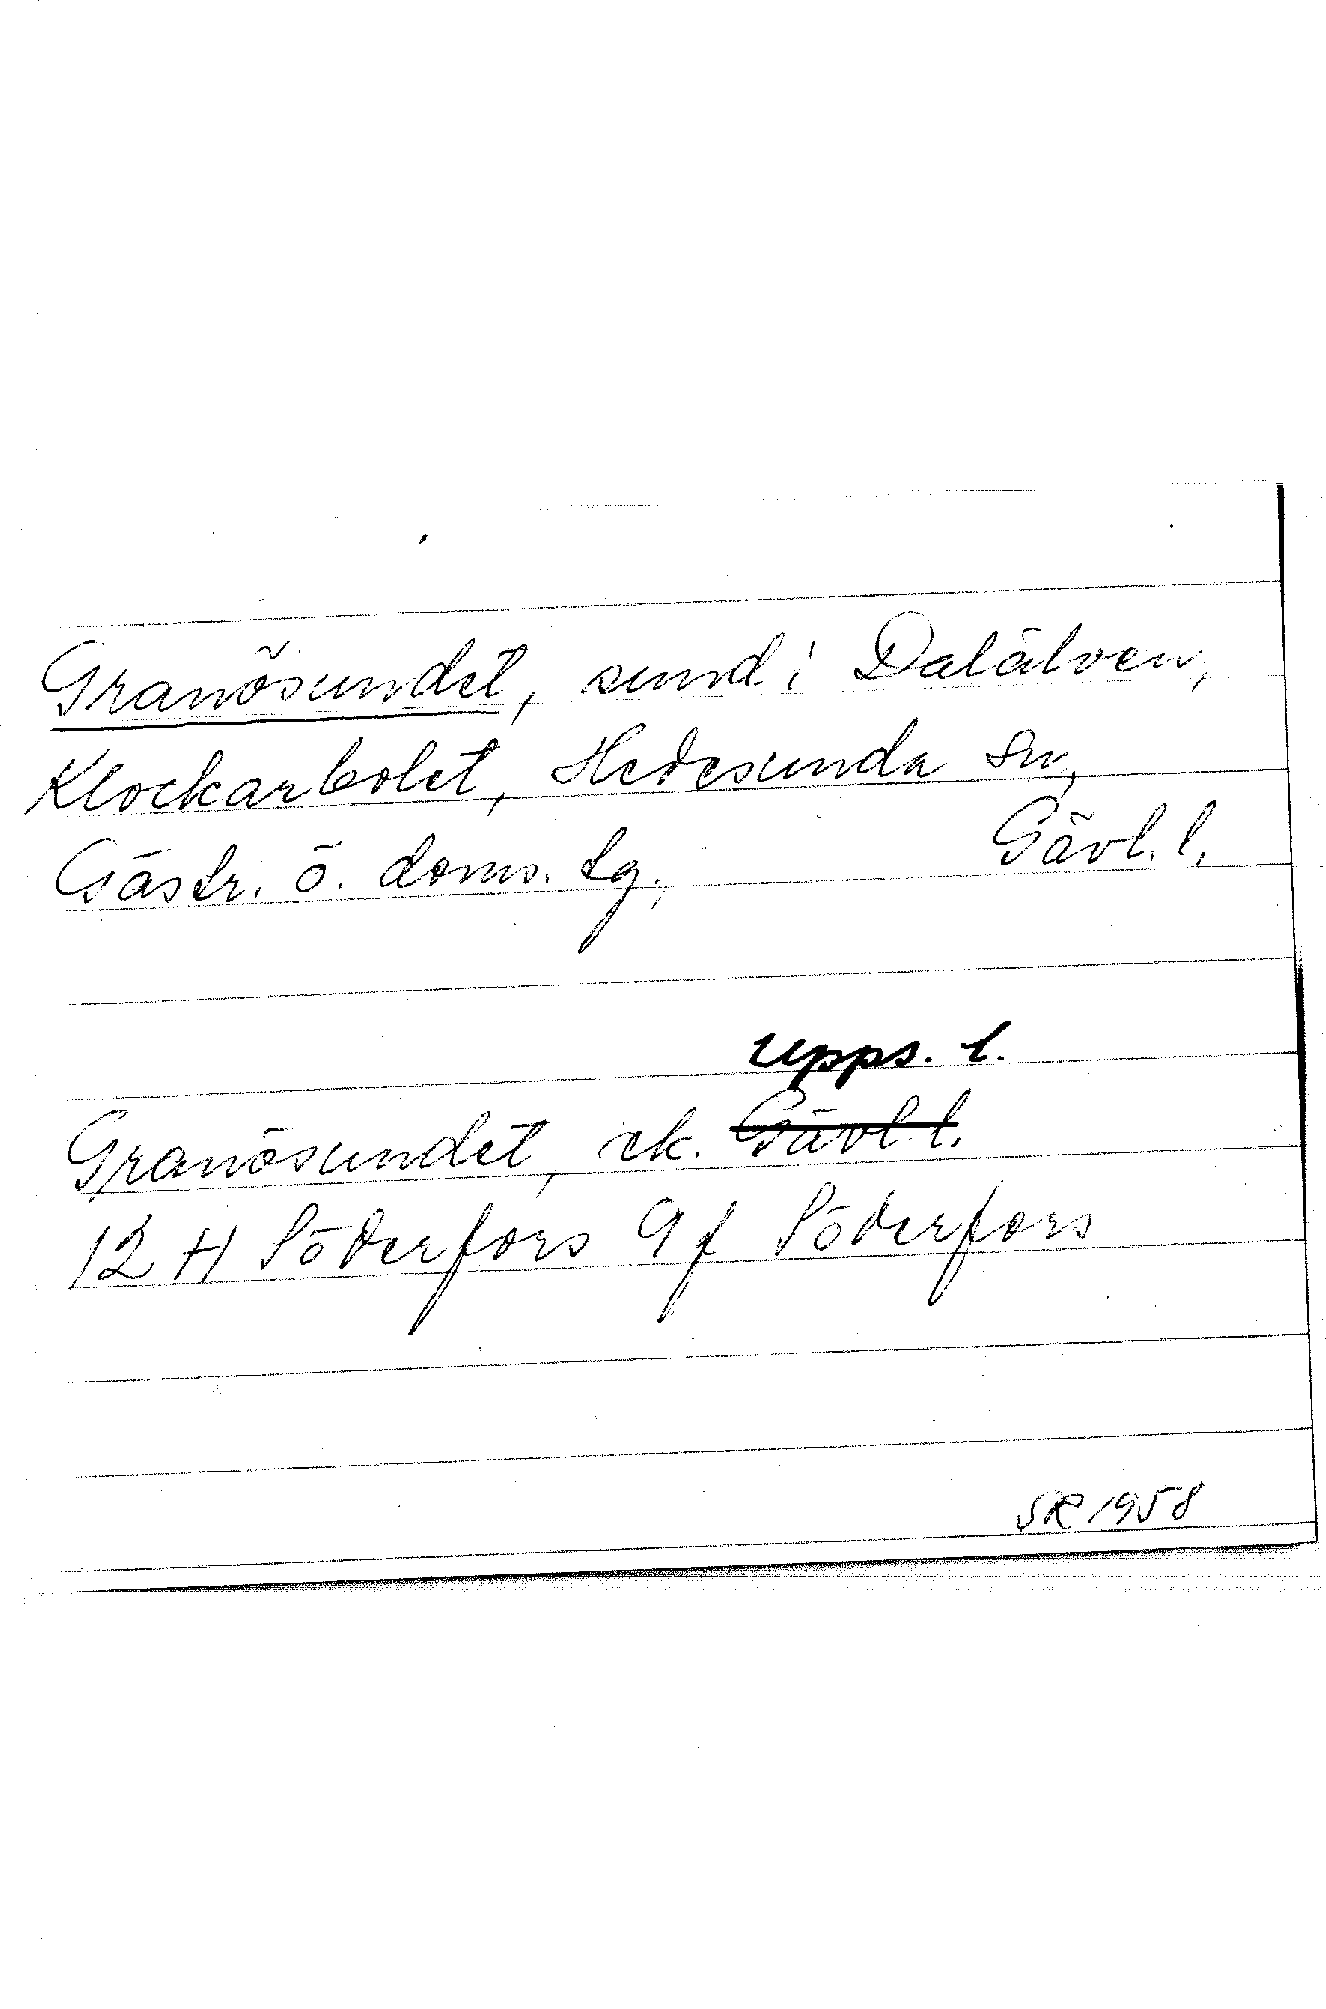 Granösundet, sund i Dalälven,
Klockarbolet, Hedesunda sn,
Gästr. ö. doms. tg., Gävl. l.
Upps. l.
Granösundet, ek. Gävl l.
12 H Söderfors 9 f Söderfors
SR 1958